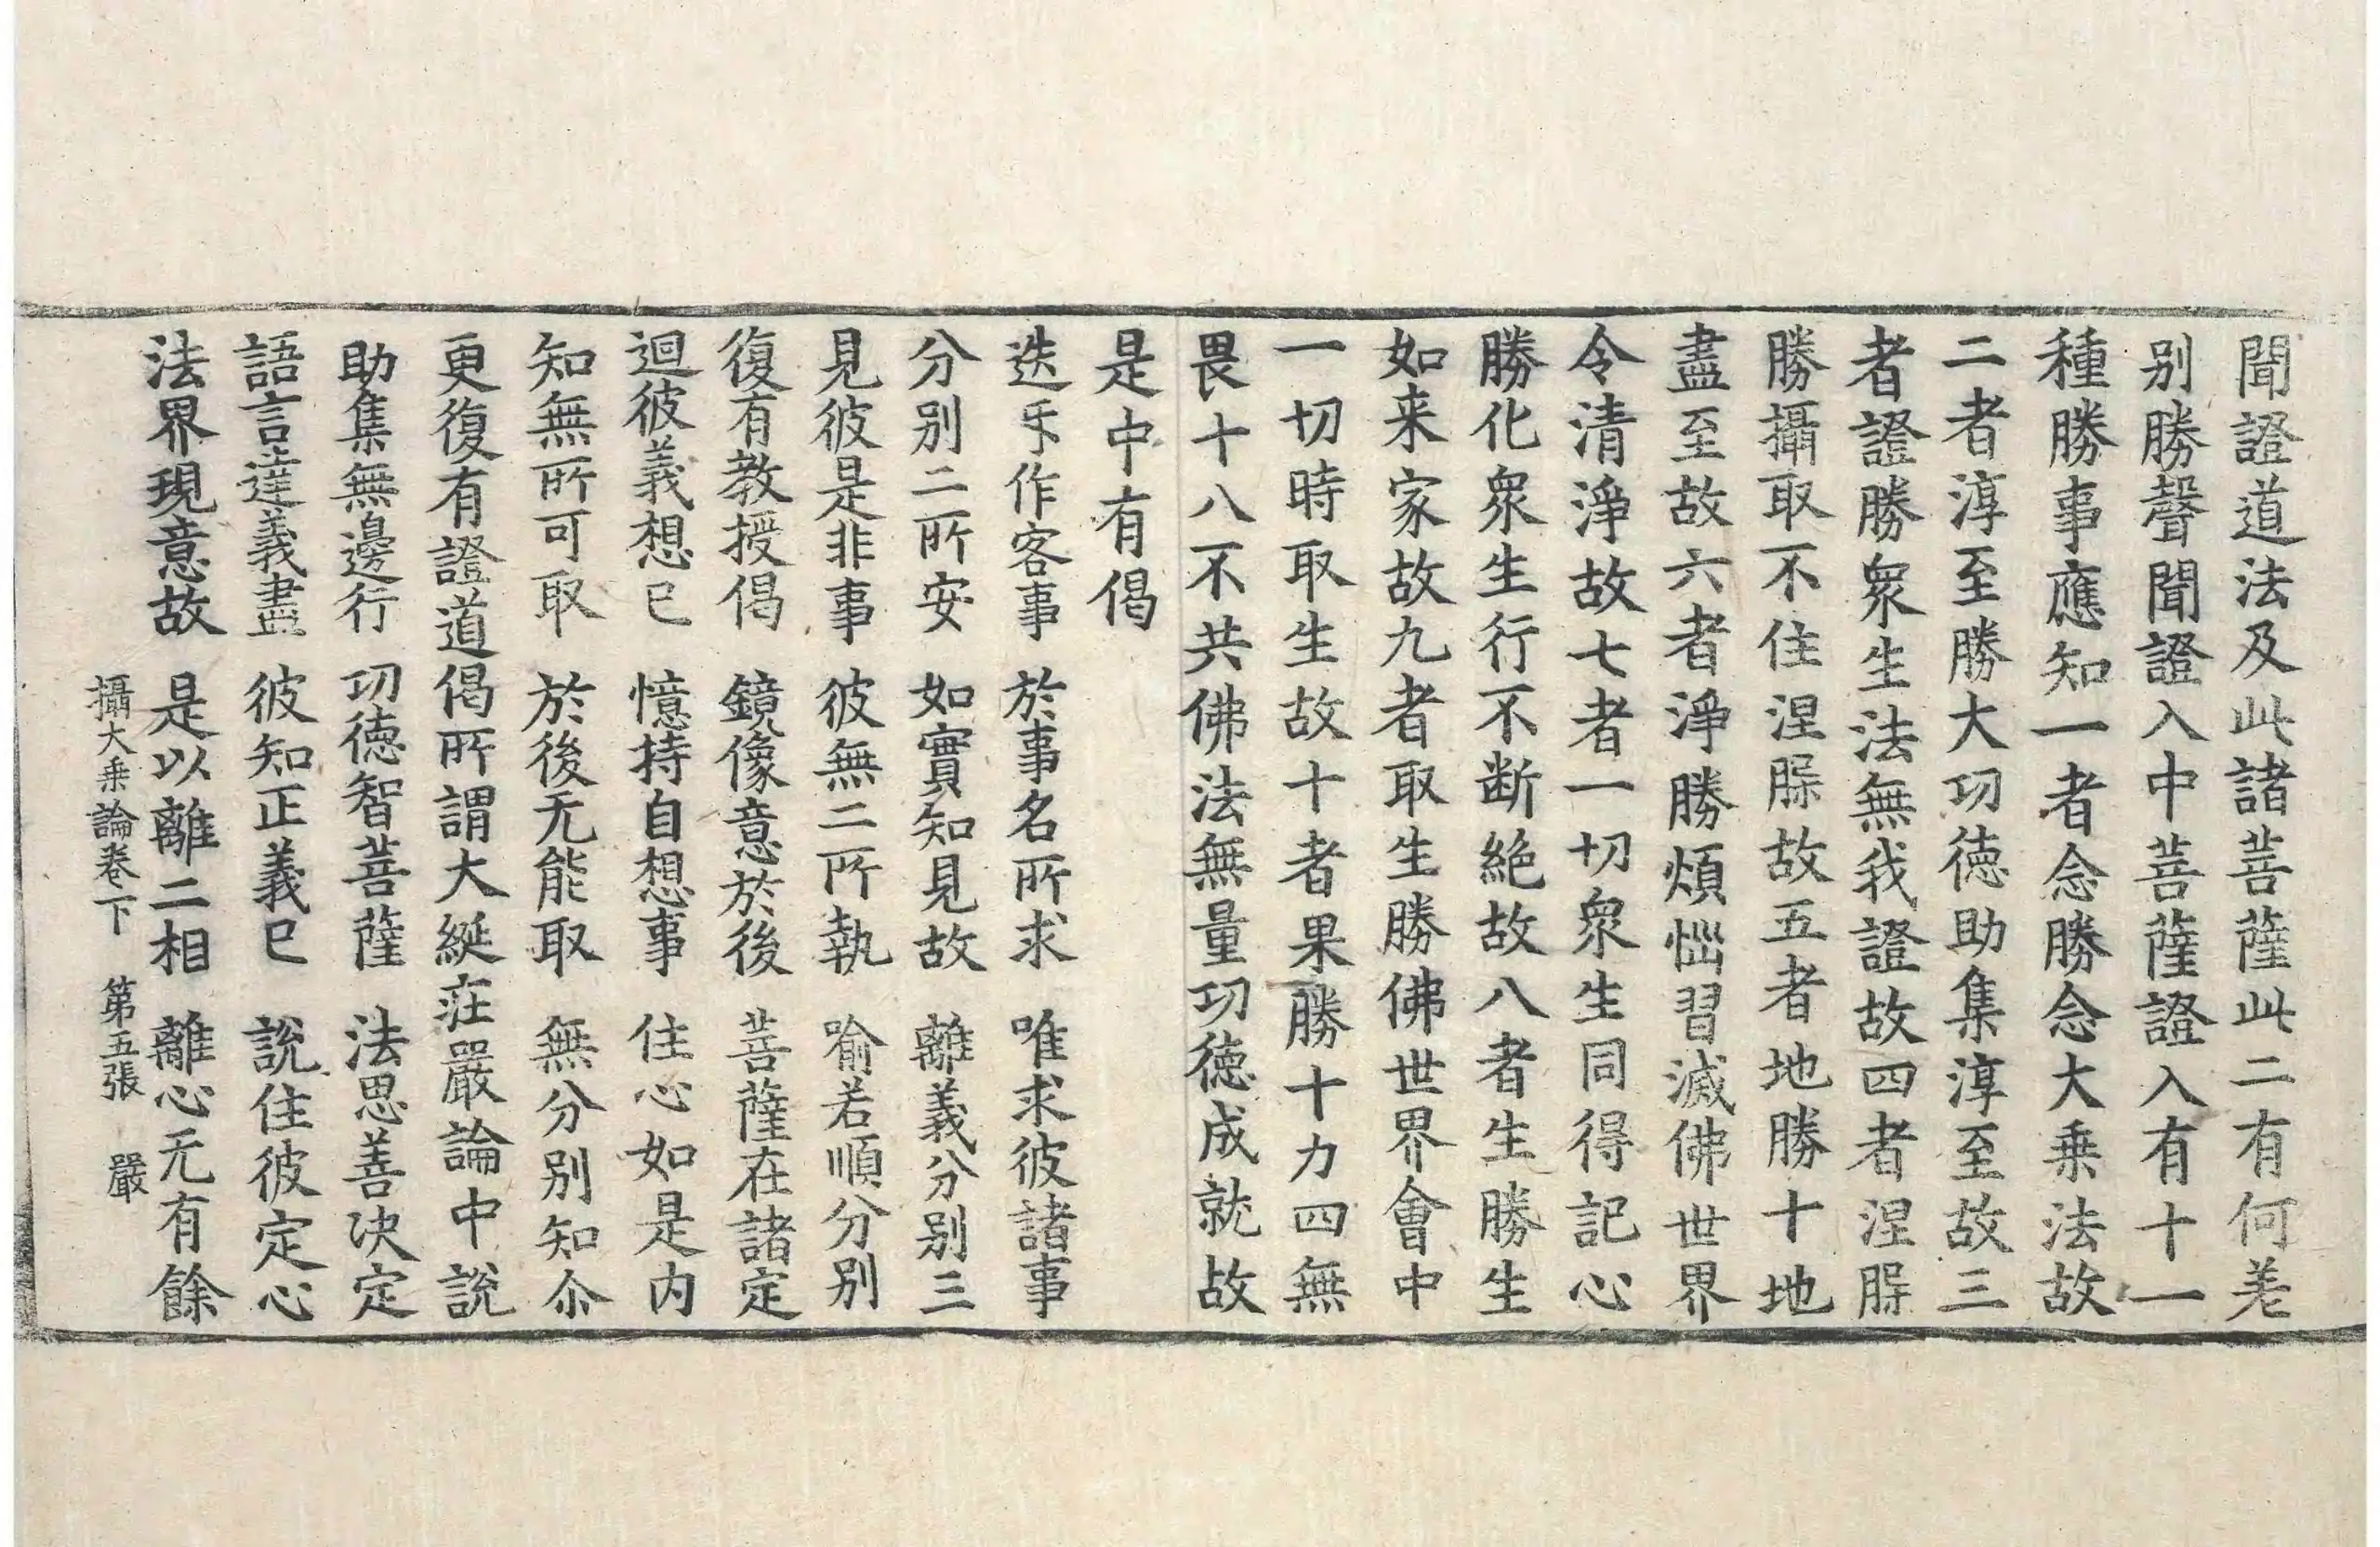 聞證道法及此諸菩薩此二有何差
别勝聲聞證入中菩薩證入有十一
種勝事應知一者念勝念大乗法故
二者淳至勝大功徳助集淳至故三
者證勝衆生法無我證故四者涅槃
勝攝取不住涅槃故五者地勝十地
盡至故六者淨勝煩惱習滅佛世界
令清淨故七者一切衆生同得記心
勝化衆生行不断絶故八者生勝生
如来家故九者取生勝佛世界會中
一切時取生故十者果勝十力四無
畏十八不共佛法無量功徳成就故
是中有偈
迭㸦作客事　於事名所求　唯求彼諸事
分别二所安　如實知見故　離義分别三
見彼是非事　彼無二所執　喻若順分别
復有教授偈　鏡像意於後　菩薩在諸定
迴彼義想已　憶持自想事　住心如是内
知無所可取　於後无能取　無分别知尒
更復有證道偈所謂大𦂶荘嚴論中説
助集無邊行　功徳智菩薩　法思善決定
語言達義盡　彼知正義已　説住彼定心
法界現意故　是以離二相　離心无有餘
攝大乗論卷下　第五張　嚴